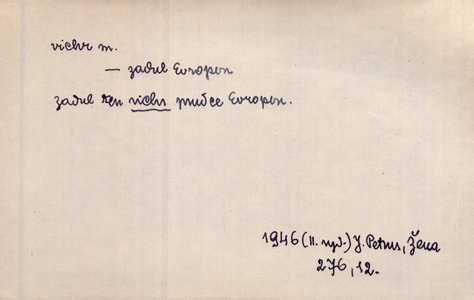 vichr m.
— zadul Evropou
zadul ten vichr prudce Evropou.
1946 (II. vyd.) J. Petrus, Žena
276, 12.